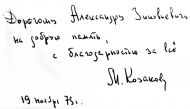 Дорогому Александру Зиновьевичу
на добрую память,
с благодарностью за всё
М. Козаков
19 ноября 73 г.